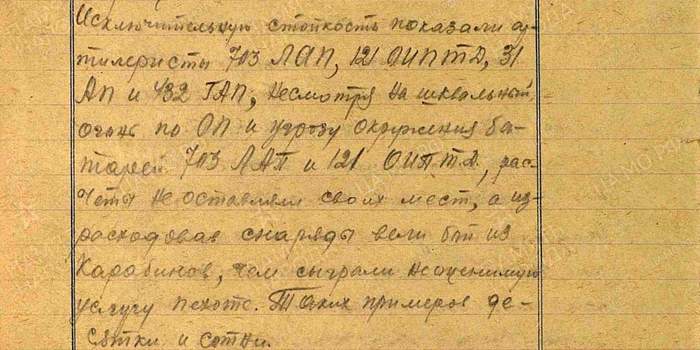 Исключительную стойкость показали ар-
тилеристы 703 ЛАП, 121 ОИПТД, 31
АП и 432 ГАП, несмотря на шквальный
огонь по ОП и угрозу окружения ба-
тарей 703 ЛАП и 121 ОИПТД, рас-
четы не оставляли своих мест, а из-
расходовав снаряды вели бой из
карабинов, чем сыграли неоценимую
услугу пехоте. Таких примеров де-
сятки и сотни.